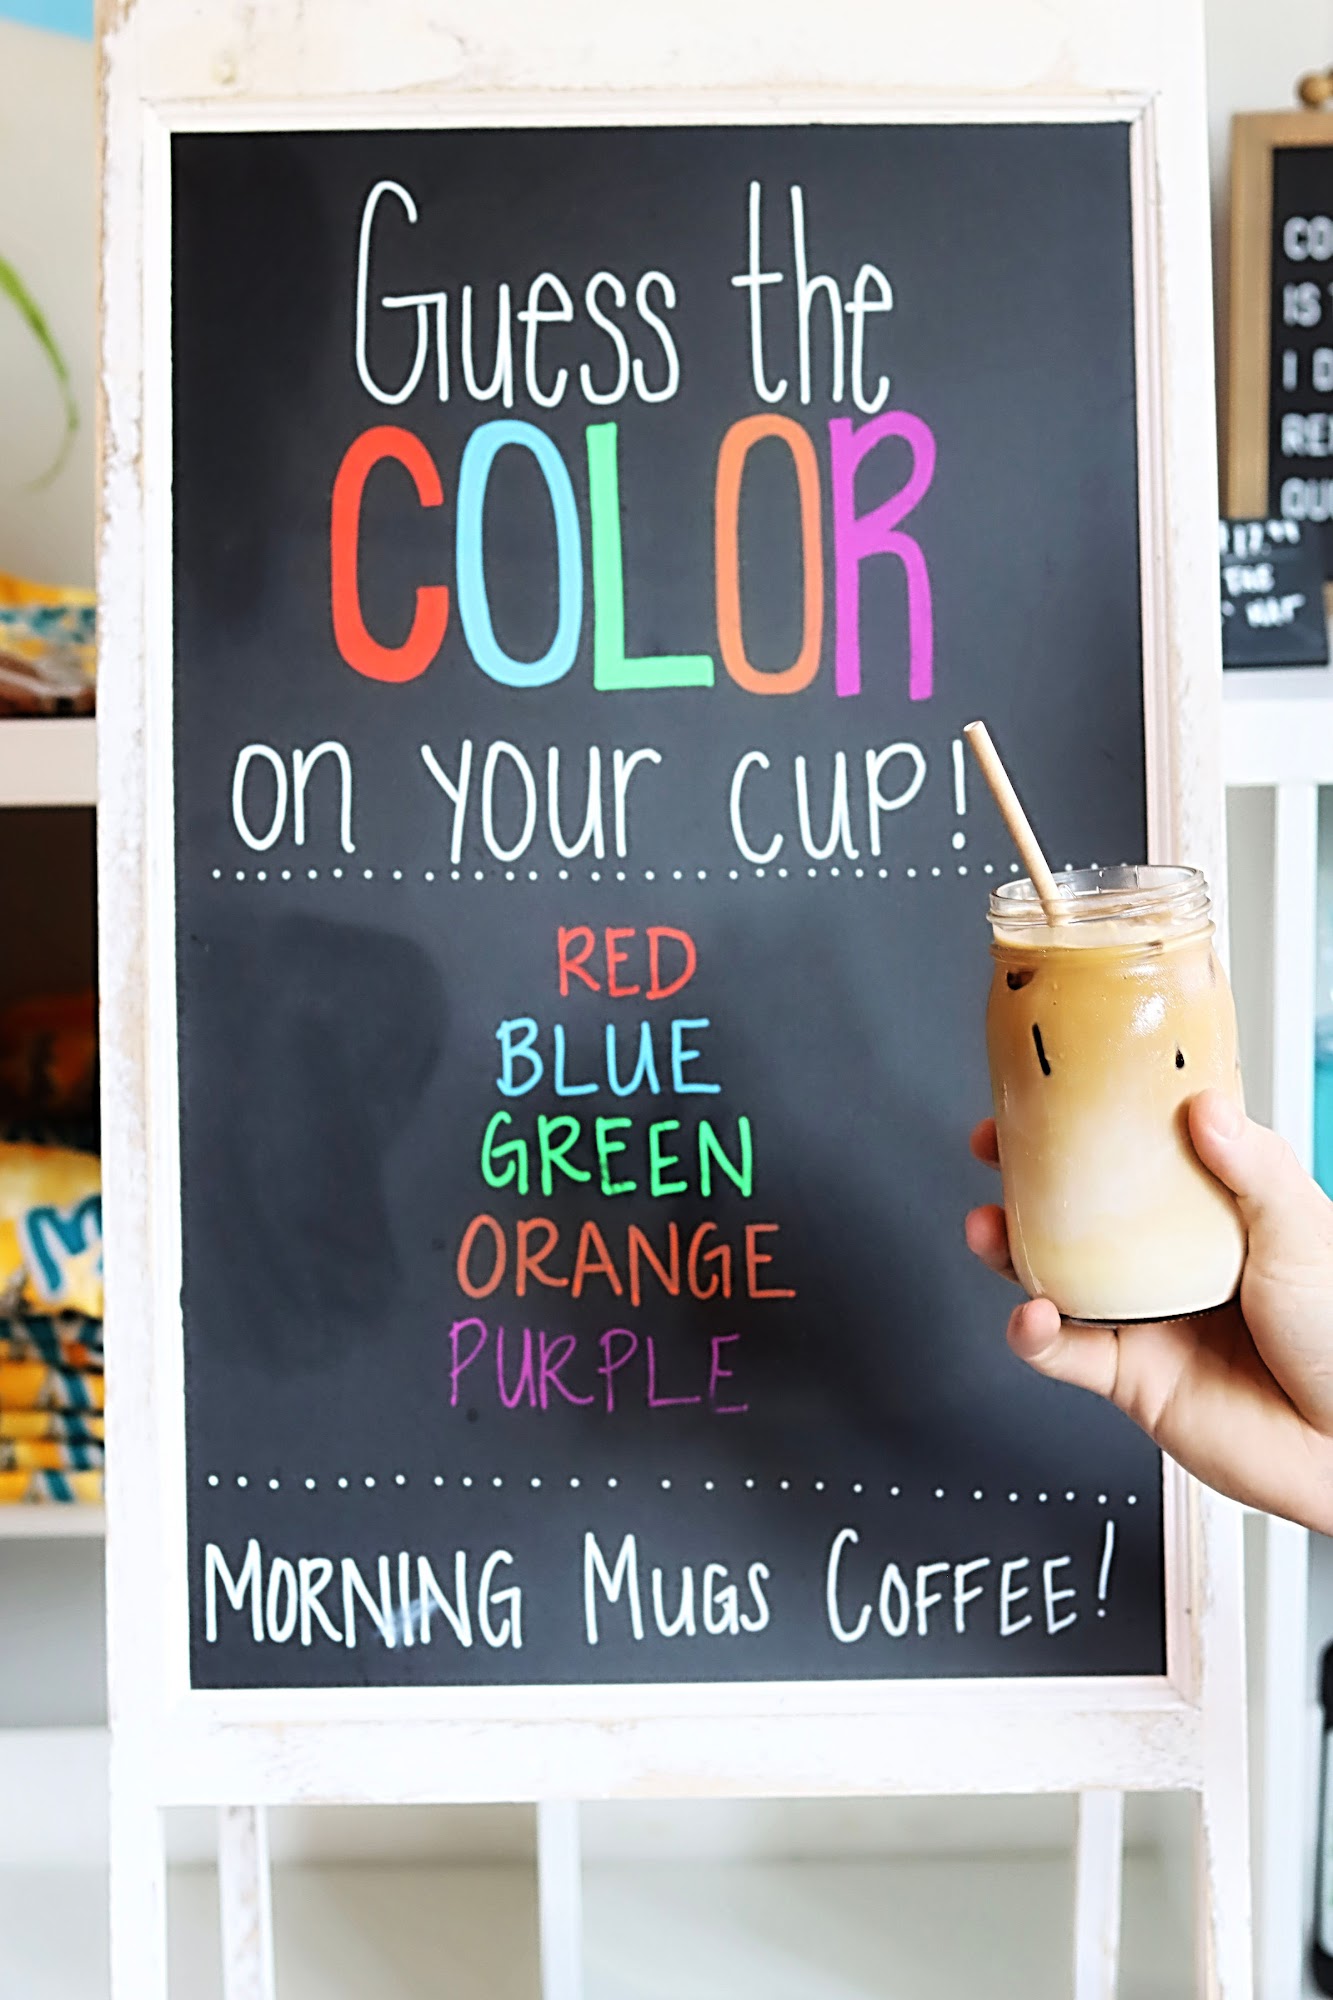 Guess the
COLOR
on your cup!
RED
BLUE
GREEN
ORANGE
PURPLE
MORNING MUGS COFFEE!
IS
I